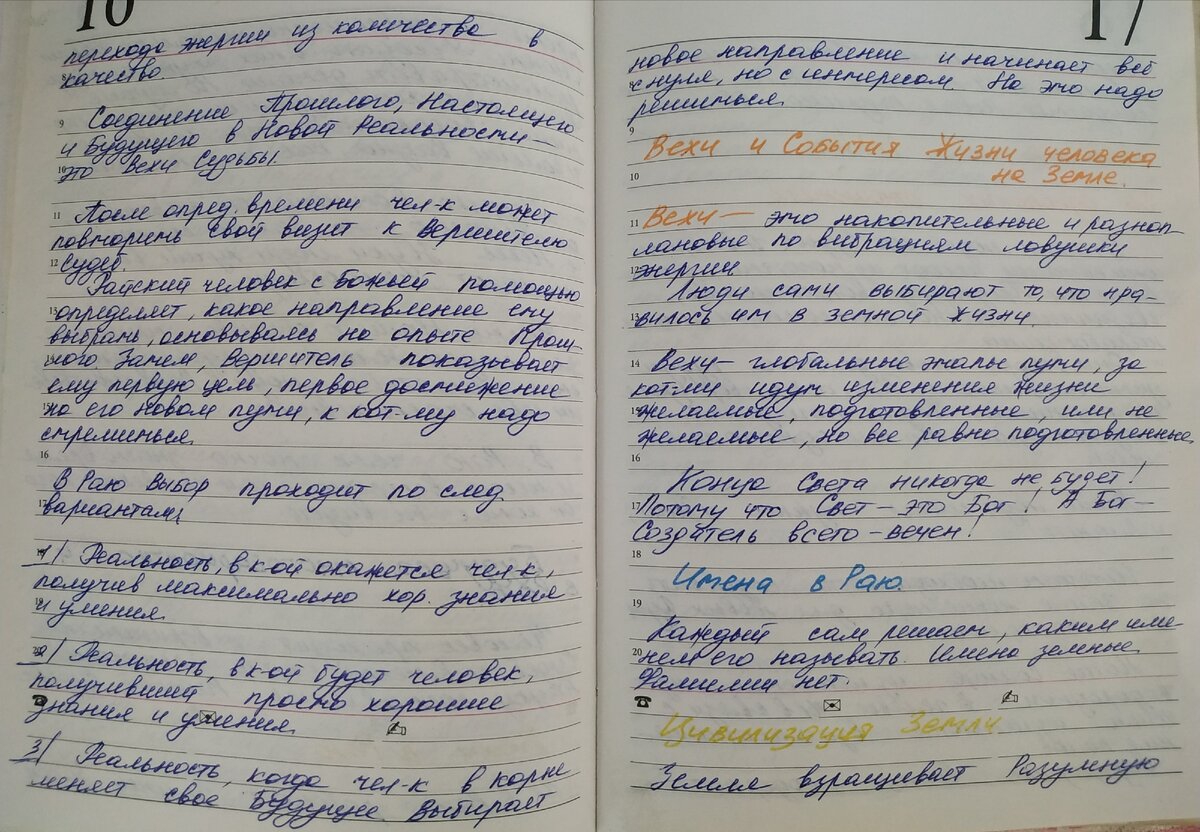 16
перехода энергии из количества в
качество
Соединение Прошлого, Настоящего
и Будущего в Новой Реальности –
это Вехи Судьбы.
После опред. времени чел-к может
повторить свой визит к Вершителю
Судеб.
Райский человек с Божьей помощью
определяет, какое направление ему
выбрать, основываясь на опыте Прош-
лого. Затем, Вершитель показывает
ему первую цель, первое достижение
на его новом пути, к кот-му надо
стремиться.
В Раю Выбор проходит по след.
вариантам:
1/ Реальность, в к-ой окажется чел-к,
получив максимально хор. знания
и умения.
2/ Реальность, в к-ой будет человек,
получивший просто хорошие
знания и умения.
3/ Реальность, когда чел-к в корне
меняет своё Будущее. Выбирает
17
новое направление и начинает всё
с нуля, но с интересом. На это надо
решиться.
Вехи и События Жизни человека
на Земле.
Вехи – это накопительные и разноп-
лановые по вибрациям ловушки
энергии
Люди сами выбирают то, что нра-
вилось им в земной жизни.
Вехи – глобальные этапы пути, за
кот-ми идут изменения жизни
желаемые, подготовленные, или не
желаемые, но все равно подготовленные
Конца Света никогда не будет!
Потому что Свет – это Бог! А Бог –
Создатель всего – вечен!
Имена в Раю.
Каждый сам решает, каким име-
нем его называть. Имена земные.
Фамилии нет.
Цивилизация Земли.
Земля взращивает Разумную